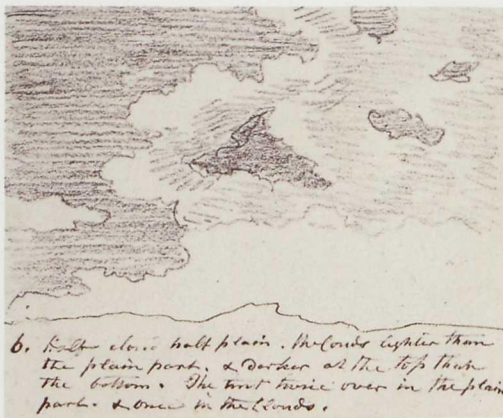 6. Half cloud half plain. the Clouds lighter than
the plain part. & Darker at the top than
the bottom. The tint twice over in the plain
part. & once in the Clouds.